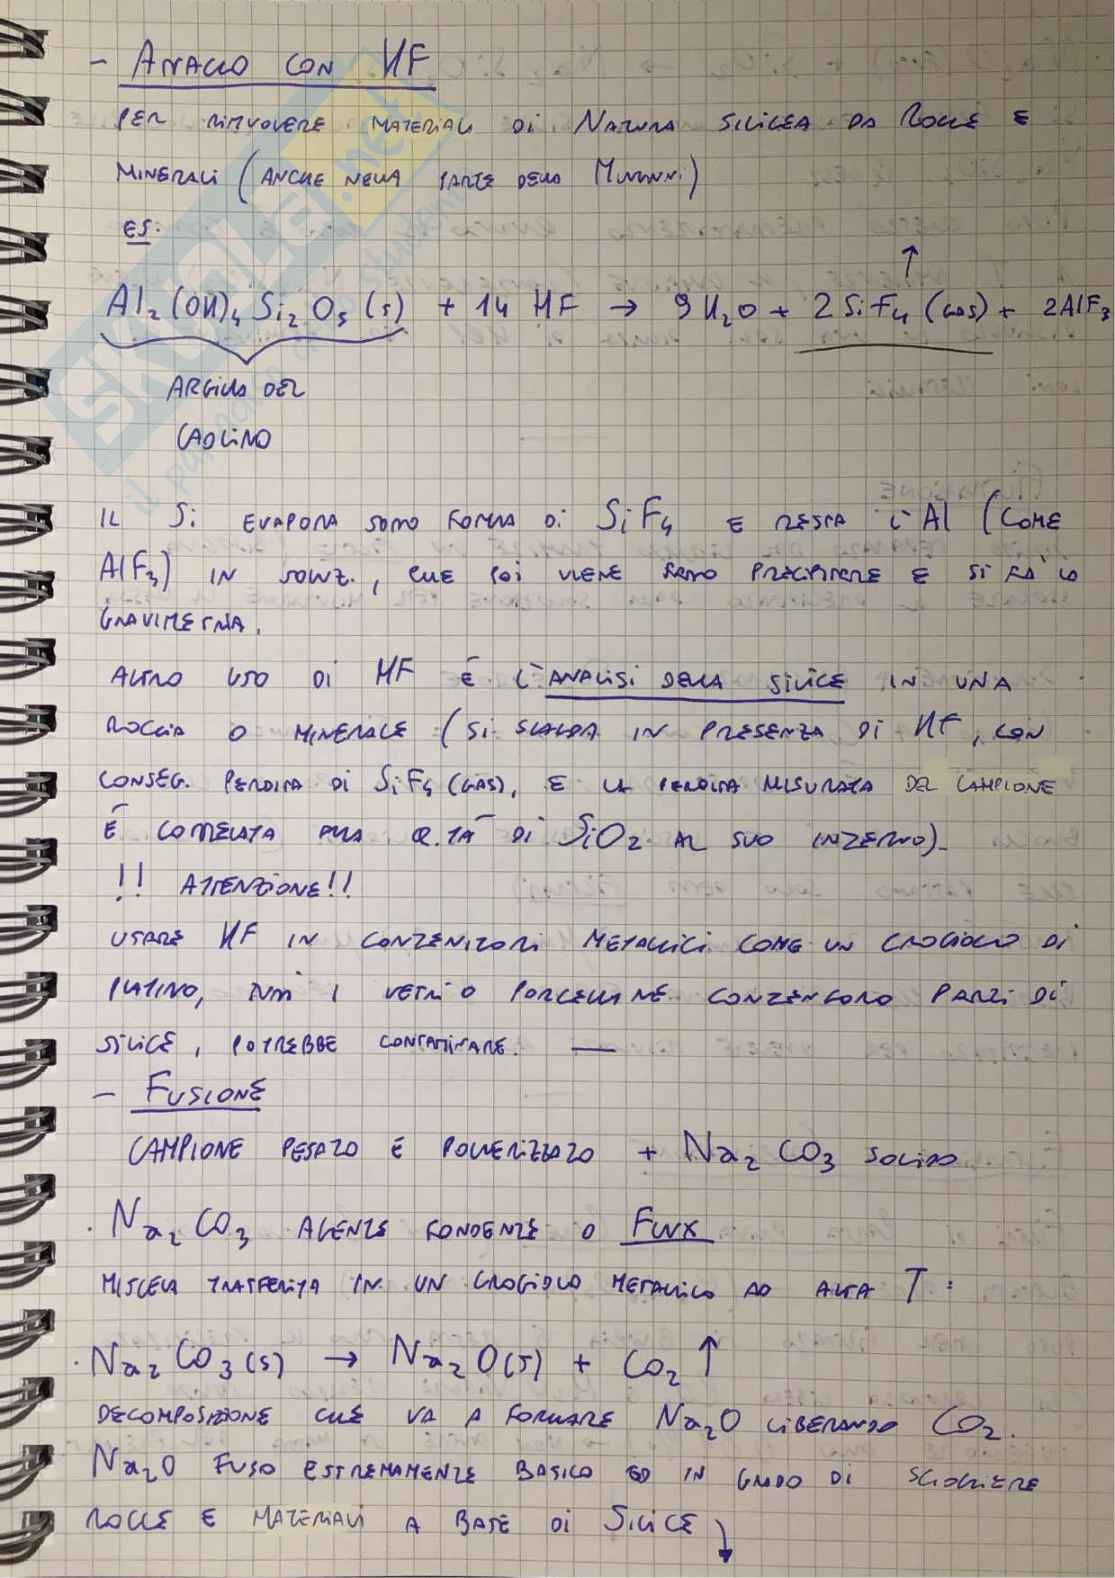 - ATTACCO CON HF
PER RIMUOVERE MATERIALI DI NATURA SILICEA DA ROCCE E
MINERALI (ANCHE NELLA PARTE DELLO)
ES:
↑
Al₂(OH)₄Si₂O₅(s) + 14 HF → 9H₂O + 2SiF₄(GAS) + 2AlF₃
ARGILLA DEL
CAOLINO
IL Si EVAPORA SOTTO FORMA DI SiF₄ E RESTA L'Al (COME
AlF₃) IN SOLUZ., CHE POI VIENE FATTO PRECIPITARE E SI FA LA
GRAVIMETRIA.
ALTRO USO DI HF È L'ANALISI DELLA SILICE IN UNA
ROCCIA O MINERALE (SI SCALDA IN PRESENZA DI HF, CON
CONSEG. PERDITA DI SiF₄(GAS), E LA PERDITA MISURATA DEL CAMPIONE
È CORRELATA ALLA Q.TÀ DI SiO₂ AL SUO INTERNO).
!! ATTENZIONE!!
USARE HF IN CONTENITORI METALLICI COME UN CROGIOLO DI
PLATINO, I VETRI O PORCELLANE CONTENGONO PARTI DI
SILICE, POTREBBE CONTAMINARE. —
- FUSIONE
CAMPIONE PESATO E POLVERIZZATO + Na₂CO₃ SOLIDO
. Na₂CO₃ AGENTE FONDENTE O FLUX
MISCELA TRASFERITA IN UN CROGIOLO METALLICO AD ALTA T:
. Na₂CO₃(s) → Na₂O(s) + CO₂↑
DECOMPOSIZIONE CHE VA A FORMARE Na₂O LIBERANDO CO₂.
Na₂O FUSO ESTREMAMENTE BASICO ED IN GRADO DI SCIOGLIERE
ROCCE E MATERIALI A BASE DI SILICE ↓
SKUOLA.net